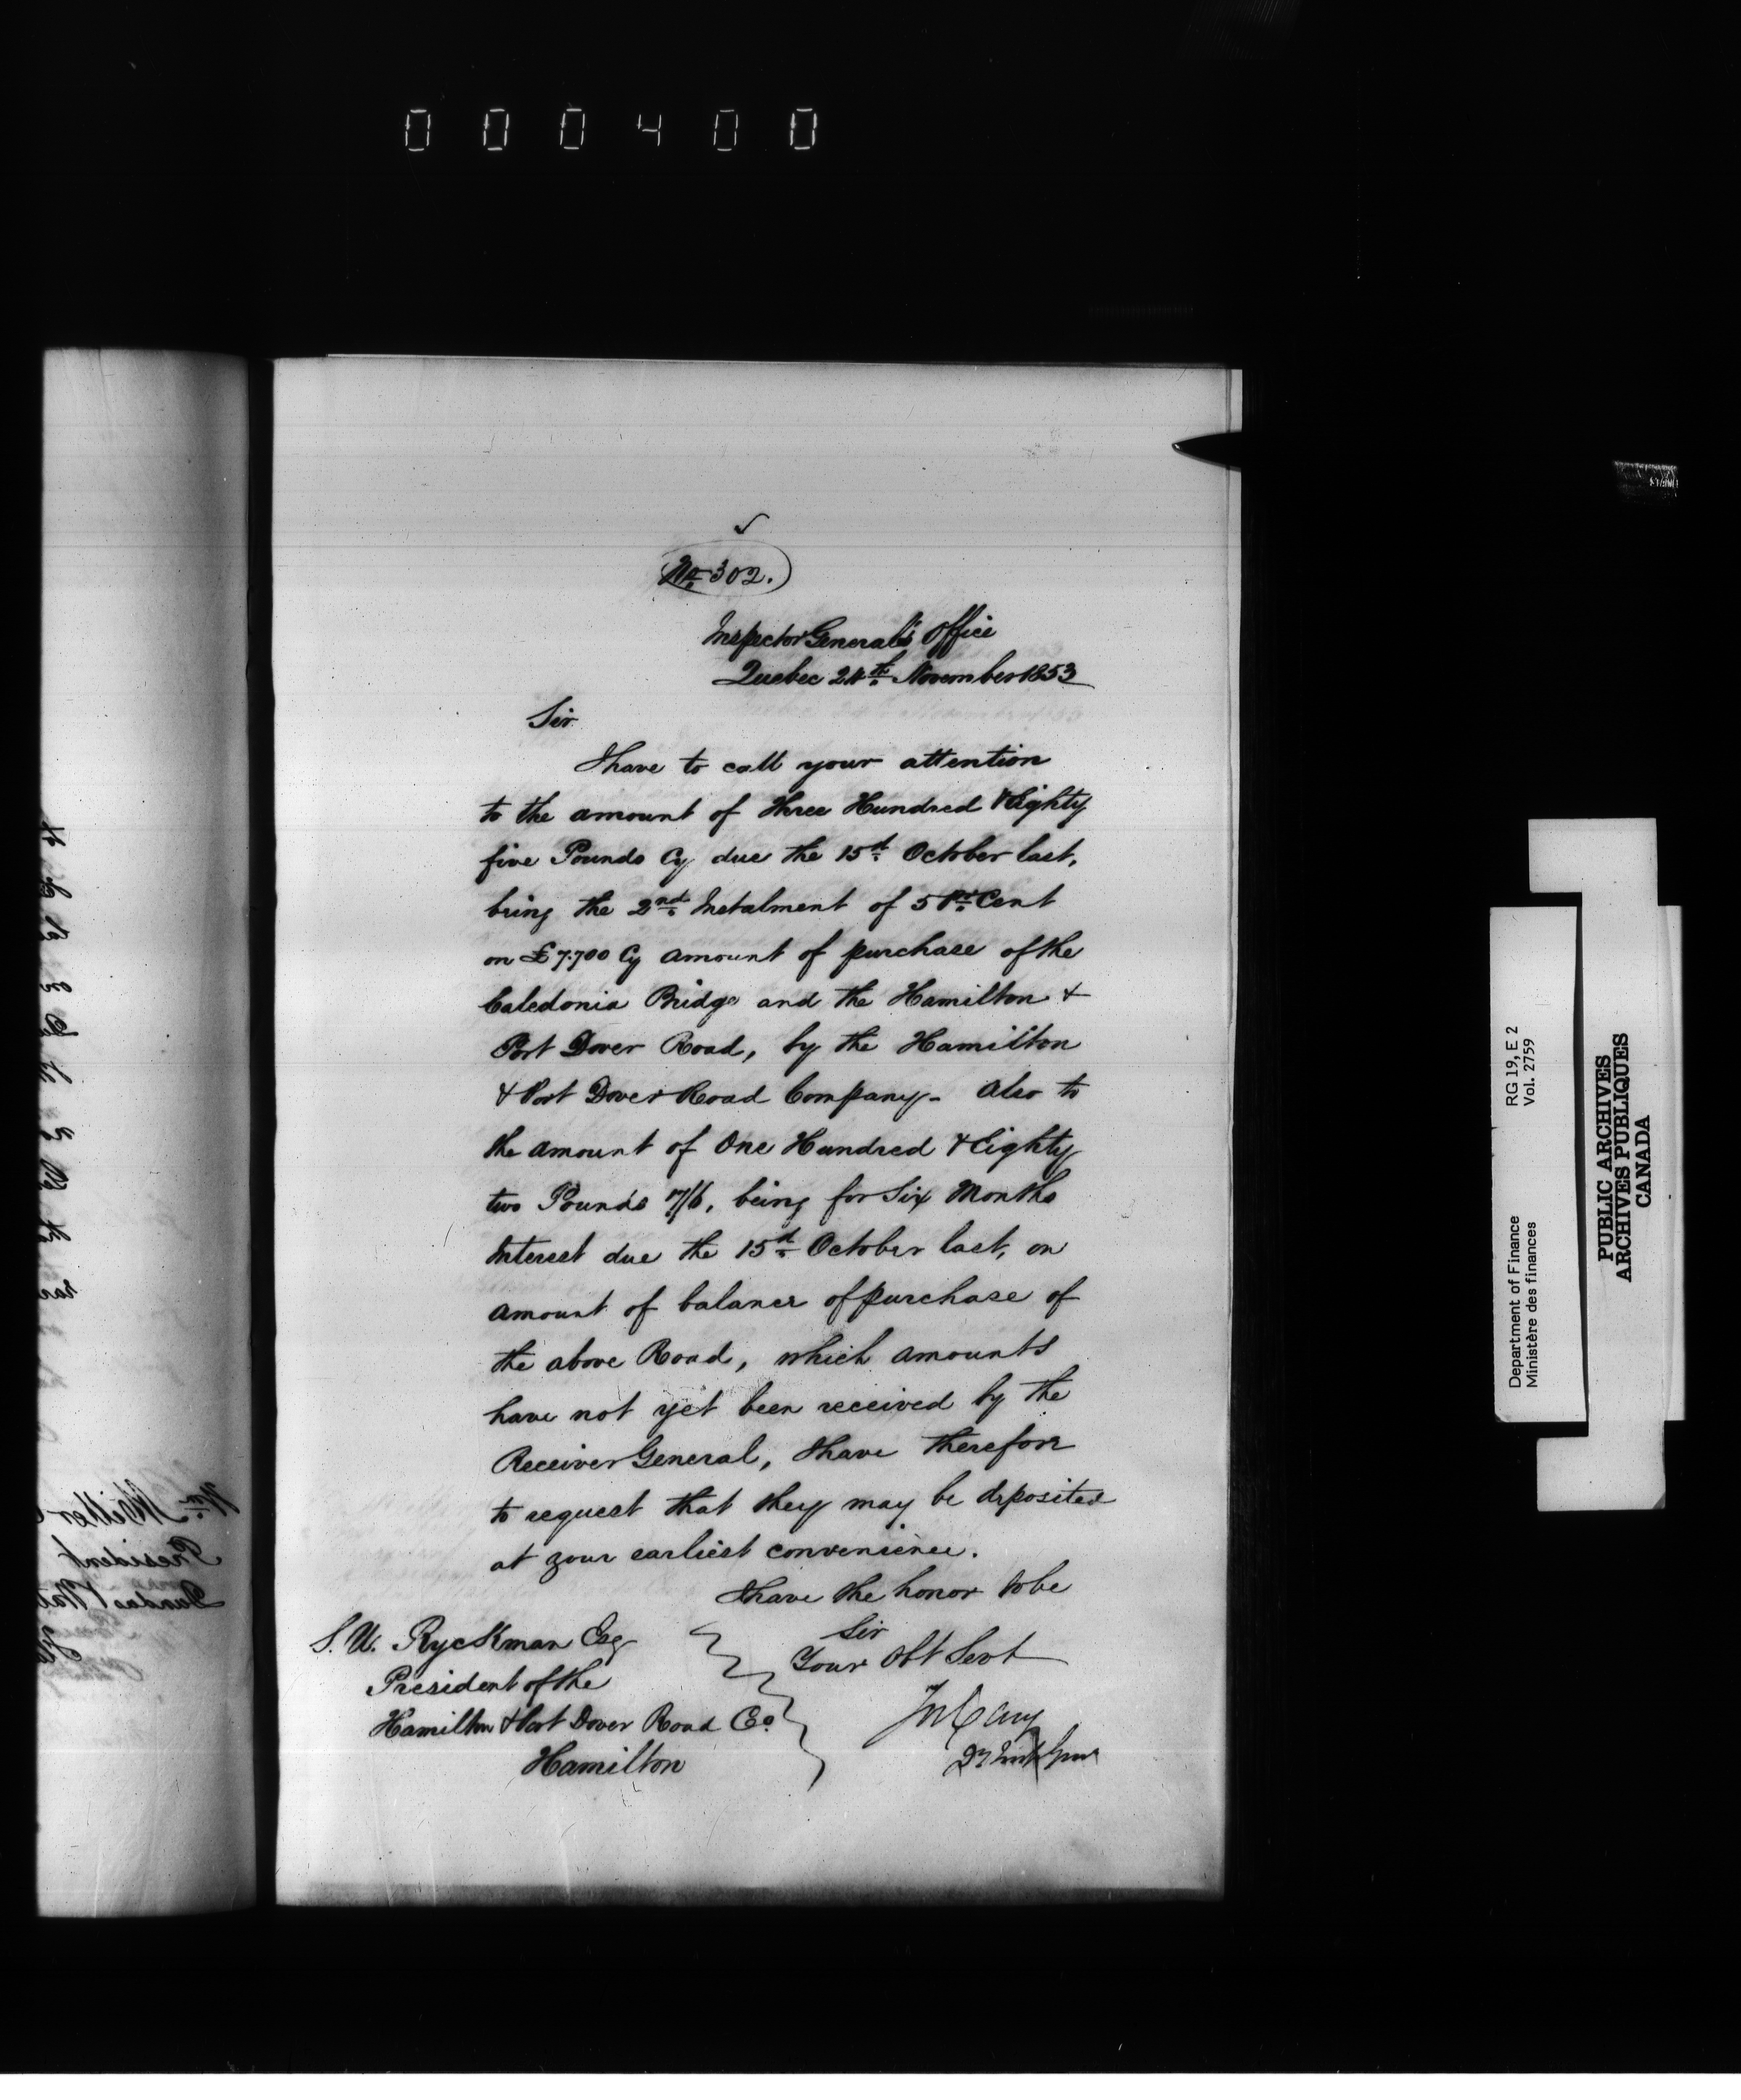 000400
No 302.
Inspector General's Office
Quebec 24th November 1853
Sir
I have to call your attention
to the amount of Three Hundred & Eighty
five Pounds Cy due the 15th October last,
being the 2nd Instalment of 5 Pr Cent
on £7.700 Cy amount of purchase of the
Caledonia Bridge and the Hamilton &
Port Dover Road, by the Hamilton
& Port Dover Road Company - Also to
the amount of One Hundred & Eighty
two Pounds 17/6, being for Six Months
Interest due the 15th October last, on
amount of balance of purchase of
the above Road, which amounts
have not yet been received by the
Receiver General, I have therefore
to request that they may be deposited
at your earliest convenience.
I have the honor to be
Sir
Your Obt Servt
Jos Cary
Dy Insp Genl
S. W. Ryckman Esq
President of the
Hamilton & Port Dover Road Co.
Hamilton
Wm Miller
President
Dundas & Wat
RG 19, E 2
Vol. 2759
Department of Finance
Ministère des finances
PUBLIC ARCHIVES
ARCHIVES PUBLIQUES
CANADA